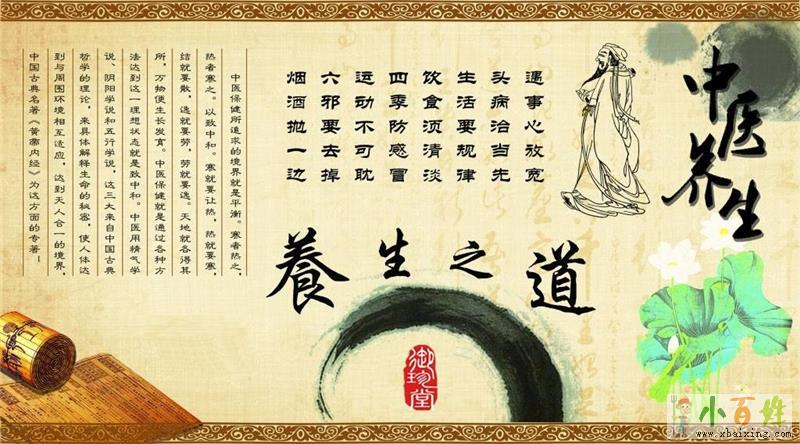 中医养生
遇事心放宽
头病治当先
生活要规律
饮食须清淡
四季防感冒
运动不可耽
六邪要去掉
烟酒抛一边
養生之道
中医保健所追求的境界就是平衡。寒者热之,
热者寒之。以致中和。寒就要让热,热就要寒,
结就要散,逸就要劳,劳就要逸。天地就各得其
所,万物便生长发育。中医保健就是通过各种方
法达到这一理想状态就是致中和。中医用精气学
说、阴阳学说和五行学说,这三大来自中国古典
哲学的理论,来具体解释生命的秘密,使人体达
到与周围环境相互适应,达到天人合一的境界,
中国古典名著《黄帝内经》为这方面的专著!
御珍堂
小百姓
www.xbaixing.com